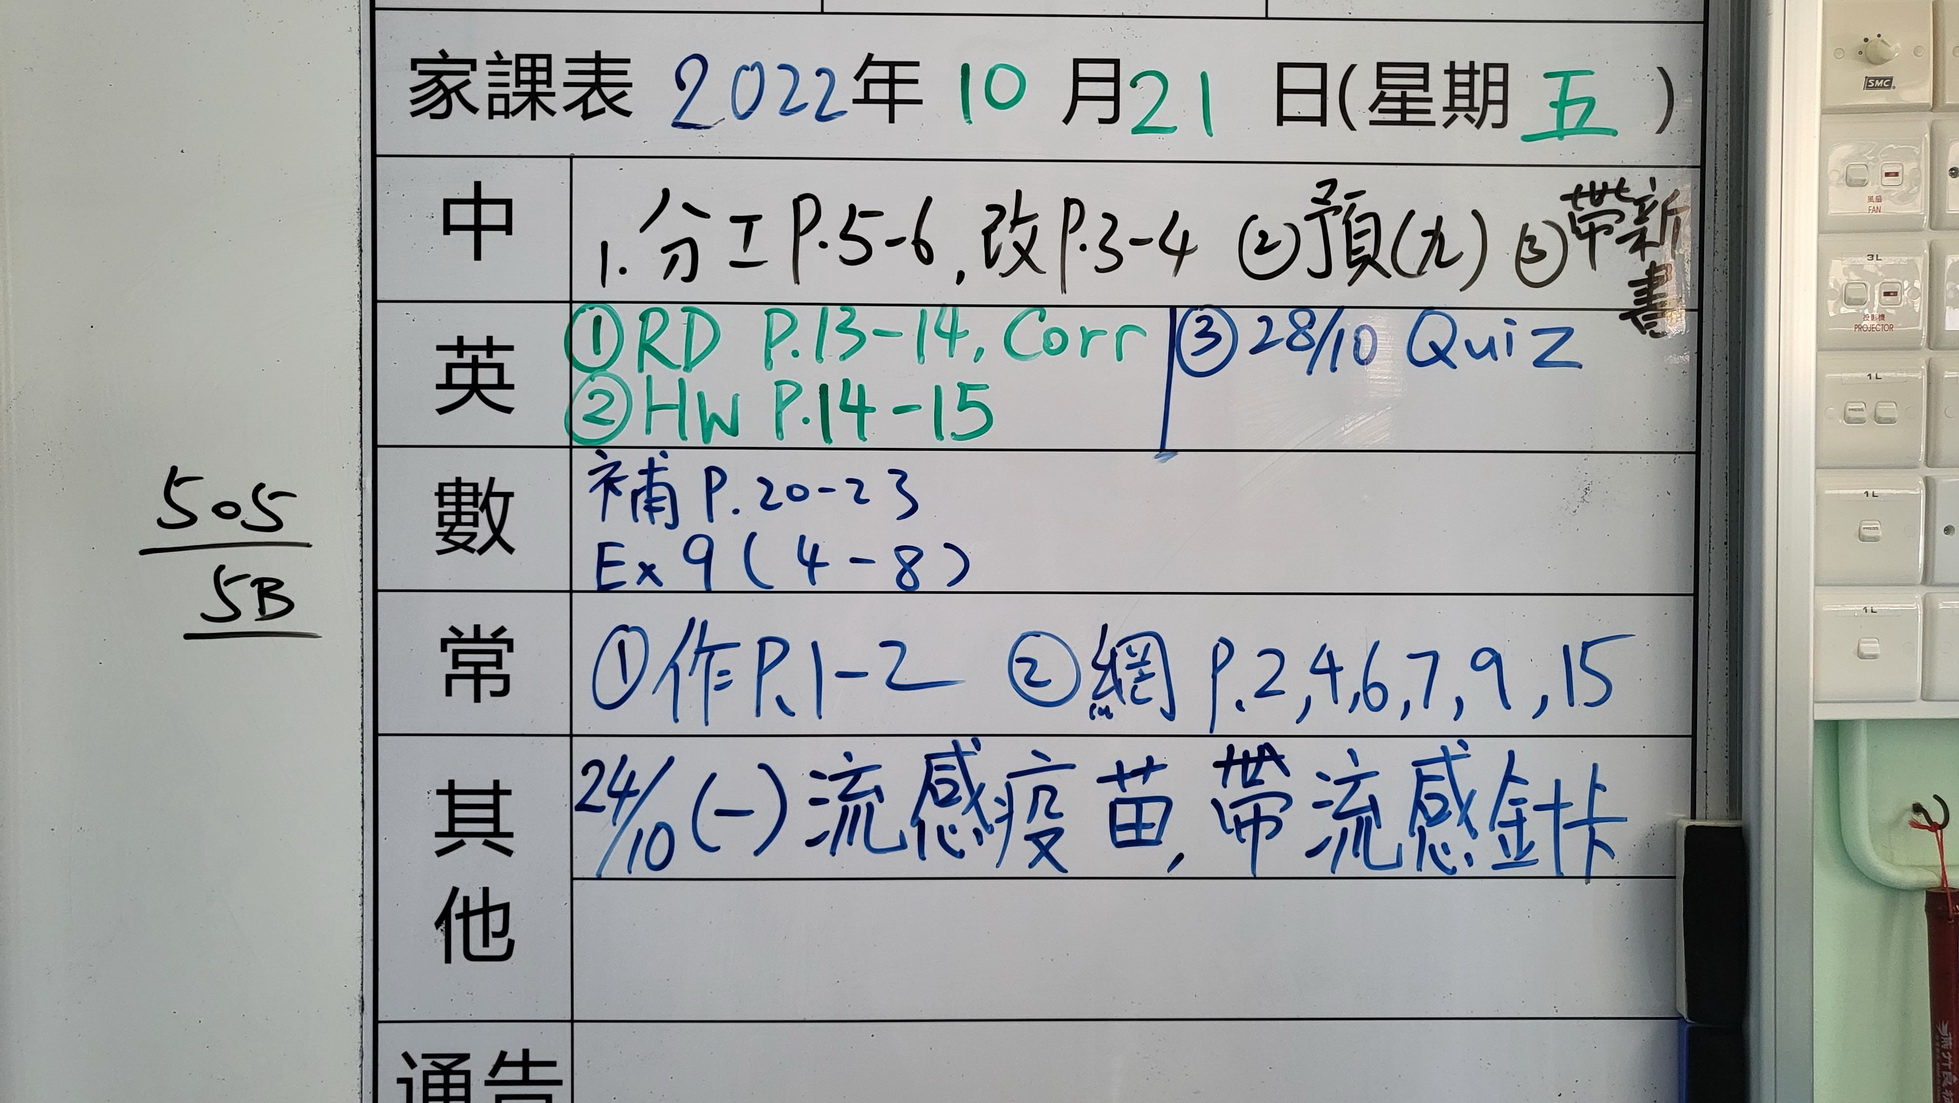 家課表 2022年 10 月 21 日(星期 五 )
中
1. 分工 P.5-6, 改P.3-4 ②預(九) ③帶新書
英
①RD P.13-14, Corr
②HW P.14-15
③28/10 Quiz
數
補 P.20-23
Ex 9 (4-8)
常
①作P.1-2 ②網 P.2,4,6,7,9,15
其他
24/10 (一) 流感疫苗, 帶流感針卡
通告
505
5B
SMC
風扇
FAN
3L
投影機
PROJECTOR
1L
PRESS
1L
1L